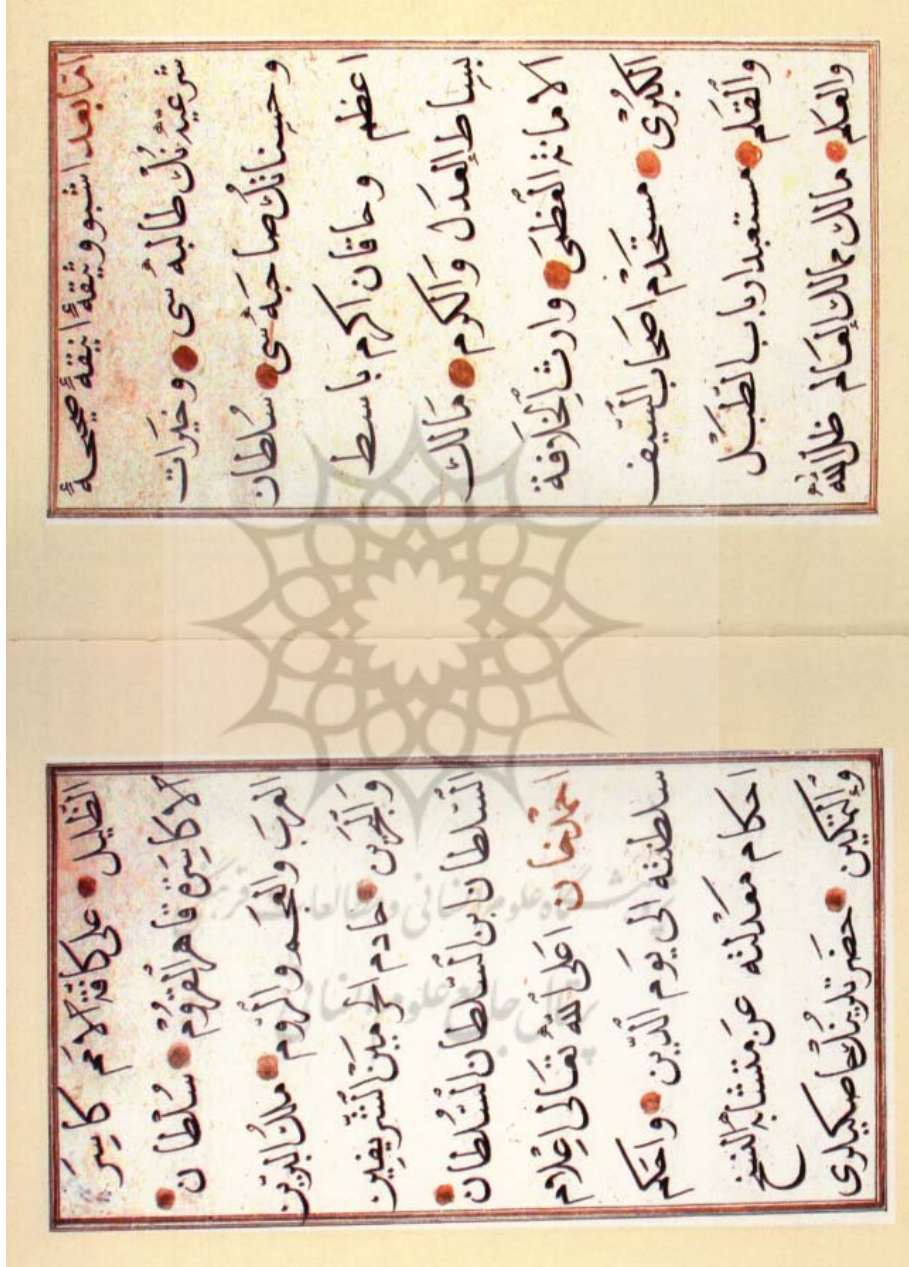 اما بعد اشبو وثيقهٔ انيقهٔ صحيحهٔ
شرعيه نك طالبه سى وخيرات
وحسناتك صاحبه سى سُلطان
اعظم وخاقان اكرم باسط
بساط العدل والكرم مالك
الامانة العظمى وارث الخلافة
الكبرى مستخدم اصحاب السيف
والقلم مستعبد ارباب الطبل
والعلم مالك ممالك العالم ظل الله
الظليل على كافة الامم كاسر
الاكاسرة قاهر القروم سُلطان
العرب والعجم والروم ملك البرين
والبحرين خادم الحرمين الشريفين
السلطان ابن السلطان السلطان
احمد خان اعلى الله تعالى اعلام
سلطنته الى يوم الدين واحكم
احكام معدلته عن متشابه النسخ
والتمكين حضرتلرينك خاصكيلرى
پژوهشگاه علوم انسانی و مطالعات فرهنگی
پرتال جامع علوم انسانی